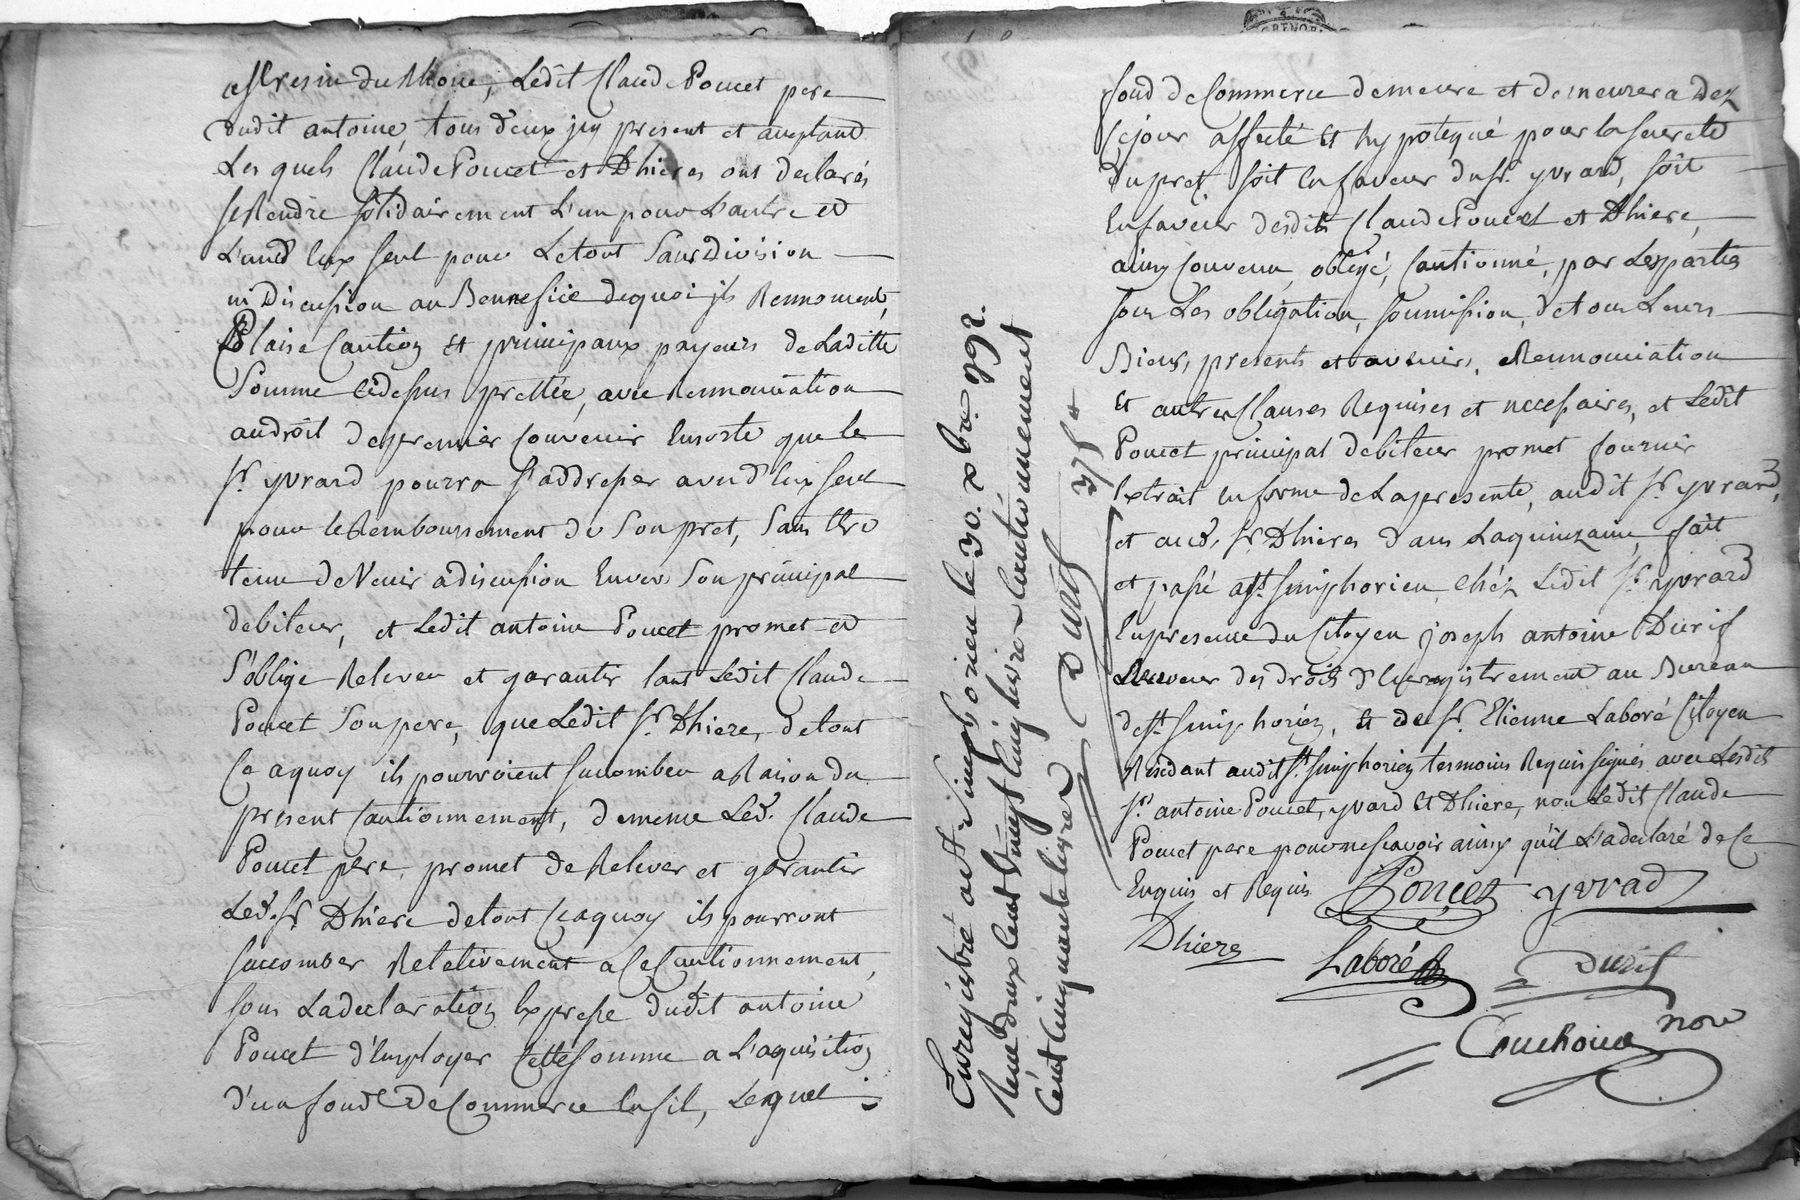 Ledit Claude Poncet pere
dudit antoine tous deux jcy present et aceptant
Lesquels Claude Poncet et Dhieres ont declarés
se Rendre solidairement L'un pour L'autre et
L'und'eux seul pour Letout sans Division
ni Discussion au Bennefice dequoi ils Rennoncent,
Plaise Caution et principaux payeurs de Laditte
Somme cidessus prettée, avec Rennonciation
audroit depremier Convenir Ensorte que le
sr. yvrard pourra s'addresser aund'eux seul
pour le Remboursement de Son pret, Sans Etre
tenu deVenir adiscussion Envers Son principal
debiteur, et Ledit antoine Poncet promet et
S'oblige Relever et garantir tant Ledit Claude
Poncet Sonpere, que Ledit sr. Dhiere, detout
Ce aquoy ils pourroient succomber a Raison du
present Cautionnement, demême Led. Claude
Poncet pere, promet de Relever et garantir
Led. sr Dhiere detout Ceaquoy ils pourront
succomber Relativement a Ce Cautionnement,
sous Ladeclaration Expresse dudit antoine
Poncet d'Employer Cette Somme a L'aquisition
d'un fond De Commerce Ensil, Lequel
fond de Commerce demeure et demeurera Dez
Cejour affecté Et hypotequé pour la seureté
Dupret, soit Enfaveur dusr. yvrard, soit
Enfaveur desdits Claude Poncet et Dhiere,
ainsy Convenu, obligé, Cautionné, par Lesparties
sous Les obligation, soumission, detous Leurs
Biens, presents et avenirs, Rennonciation
Et autres Clauses Requises et necessaires, et Ledit
Poncet principal debiteur promet fournir
Extrait Enforme de Lapresente, audit sr. yvrard,
et aud. sr. Dhieres dans Laquinzaine, fait
et passé ast. simphorien, Chéz Ledit sr. yvrard
Enpresence du Citoyen joseph antoine Durif
Receveur des droits d'Enregistrement au Bureau
dest. simphorien, Et de sr. Etienne Laboré Citoyen
Residant audit st. simphorien temoins Requis signés avec Lesdits
srs. antoine Poncet, yvard Et Dhiere, non Ledit Claude
Poncet pere pour nescavoir ainsy qu'il L'adeclaré de Ce
Enquis et Requis Poncet yvrad
Dhiere Laboré Durif
Couchoud nore
Enregistré a st. Simphorien le 30. xbre. 1792.
Recu deux
Cent Cinquante livres Durif